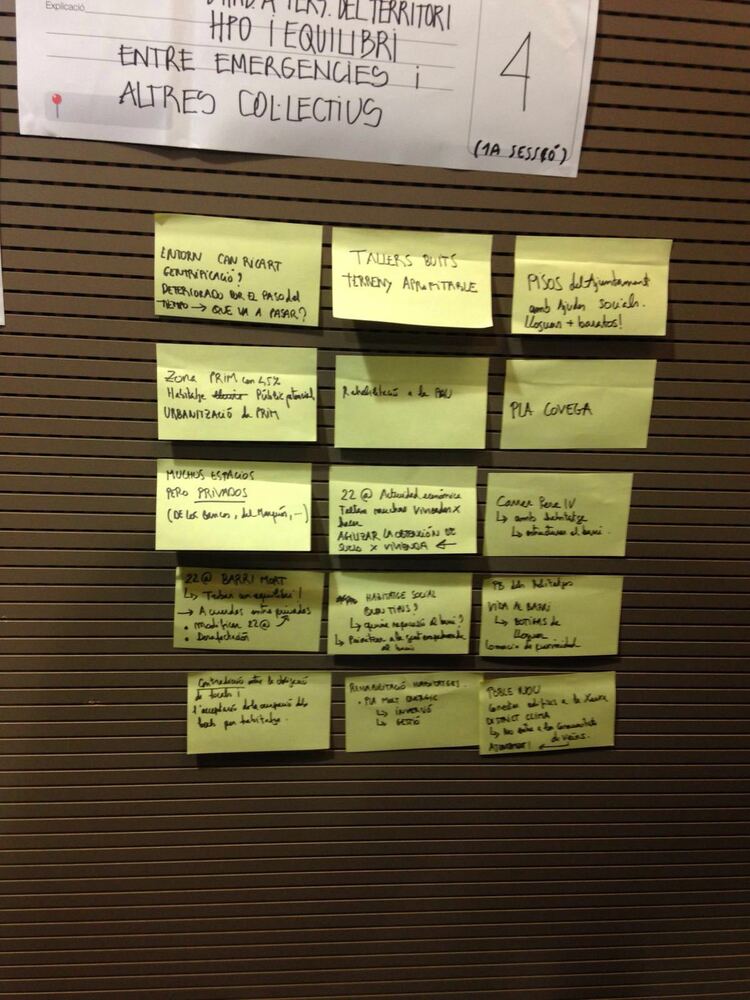 Explicació
A PERS. DEL TERRITORI
HPO i EQUILIBRI
ENTRE EMERGENCIES i
ALTRES COL·LECTIUS
4
(1A SESSIÓ)
ENTORN CAN RICART
GENTRIFICACIÓ?
DETERIORADO POR EL PASO del
TIEMPO → QUE VA A PASAR?
TALLERS BUITS
TERRENY APROFITABLE
PISOS del Ajuntament
amb Ajudes socials.
lloguers + baratos!
Zona PRIM con 45%
Habitatge Públic potencial
URBANITZACIÓ de PRIM
Rehabilitació a la
PLA COVEGA
MUCHOS ESPACIOS
PERO PRIVADOS
(DE LOS BANCOS, del Marqués, -)
22 @ Actividad económica
Faltan muchas viviendas x
hacer
AGILIZAR LA OBTENCIÓN DE
SUELO X VIVIENDA ←
Carrer Pere IV
↳ amb habitatge
↳ estructurar el barri.
22@ BARRI MORT
↳ Trobar un equilibri!
→ Acuerdos entre privados
• Modificar 22@
• Desafectación
HABITATGE SOCIAL
QUIN TIPUS?
↳ quina repercusió al barri?
↳ Prioritzar a la gent empadronada
al barri
PB dels Habitatges
VIDA AL BARRI
↳ BOTIGAS de
lloguer
Comercio de proximidad
Contradicción entre la
de locals i
l'acceptació de la ocupació dels
locals per habitatge.
REHABILITACIÓ HABITATGES.
• PLA MORT ENERGIC
↳ INVERSIÓ
↳ GESTIÓ
POBLE NOU
Conectar edificis a la Xarxa
DISTRICT CLIMA
↳ No entre a les Comunitats
de Vecins.
AJUNTAMENT! ←